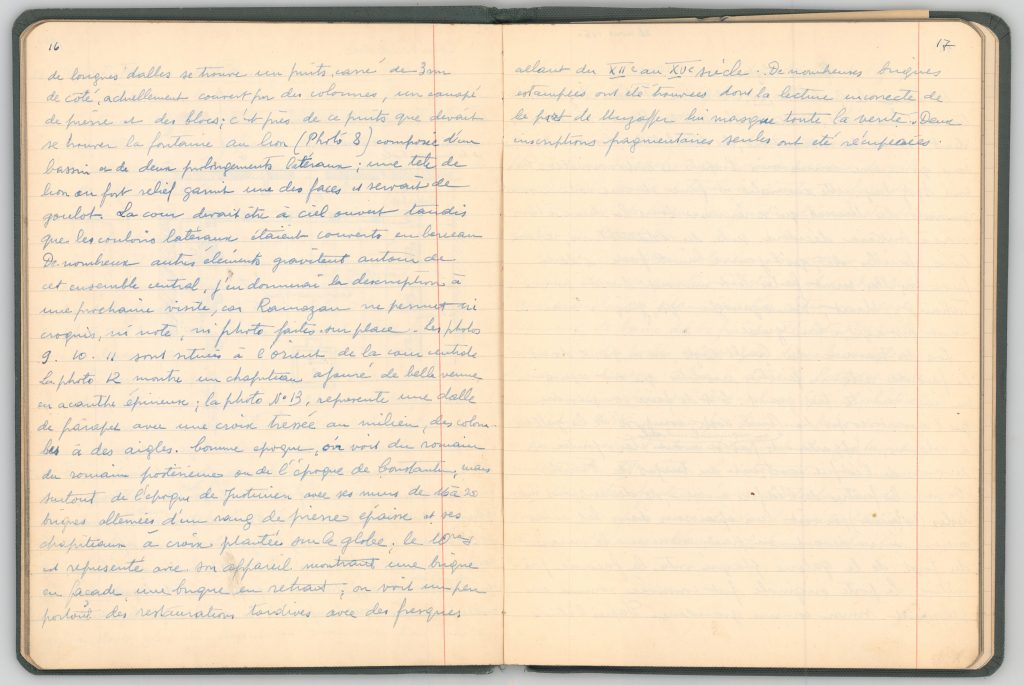 16
de longues dalles se trouve un puits carré de 3m
de côté, actuellement couvert par des colonnes, un canapé
de pierre et des blocs; c'est près de ce puits que devait
se trouver la fontaine au lion (Photo 8) composée d'un
bassin et de deux prolongements latéraux; une tête de
lion en fort relief garnit une des faces et servait de
goulot. La cour devait être à ciel ouvert tandis
que les couloirs latéraux étaient couverts en berceau
De nombreux autres éléments gravitent autour de
cet ensemble central, j'en donnerai la description à
une prochaine visite, car Ramazan ne permet ni
croquis, ni note, ni photo faites sur place. Les photos
9. 10. 11 sont situées à l'orient de la cour centrale
La photo 12 montre un chapiteau ajouré de belle venue
en acanthe épineuse; la photo No 13, représente une dalle
de parapet avec une croix tressée au milieu, des colom-
bes à des aigles. Comme époque, on voit du romain
du romain postérieure ou de l'époque de Constantin, mais
surtout de l'époque de Justinien avec ses murs de 16 à 20
briques alternées d'un rang de pierre épaisse et ses
chapiteaux à croix plantées sur le globe; le 10me s
est représenté avec son appareil montrant une brique
en façade une brique en retrait; on voit un peu
partout des restaurations tardives avec des fresques
17
allant du XIIe au XVe siècle. De nombreuses briques
estampées ont été trouvées dont la lecture incorrecte de
le part de Muzaffer lui masque toute la verité. Deux
inscriptions fragmentaires seules ont été récupérées.